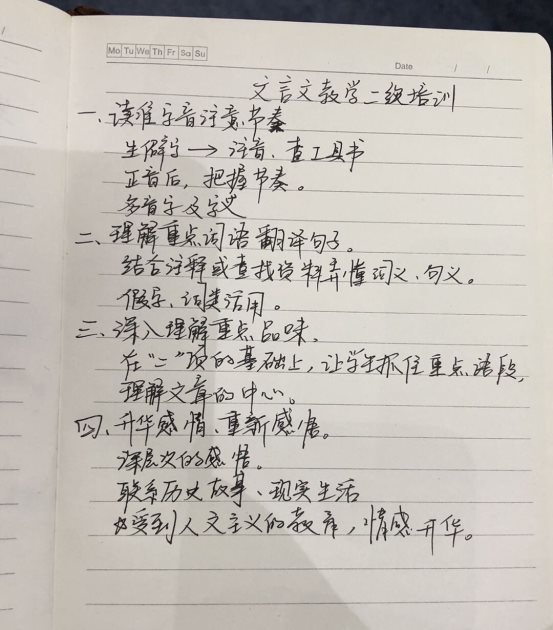 Mo Tu We Th Fr Sa Su
Date / /
文言文教学二级培训
一、读准字音注意节奏
生僻字→注音、查工具书
正音后，把握节奏。
多音字及字义
二、理解重点词语翻译句子。
结合注释或查找资料弄懂词义、句义。
假字、词类活用。
三、深入理解重点品味.
在"二"项的基础上，让学生抓住重点语段，
理解文章的中心。
四、升华感情、重新感悟。
深层次的感悟。
联系历史故事、现实生活
受到人文主义的教育，情感升华。